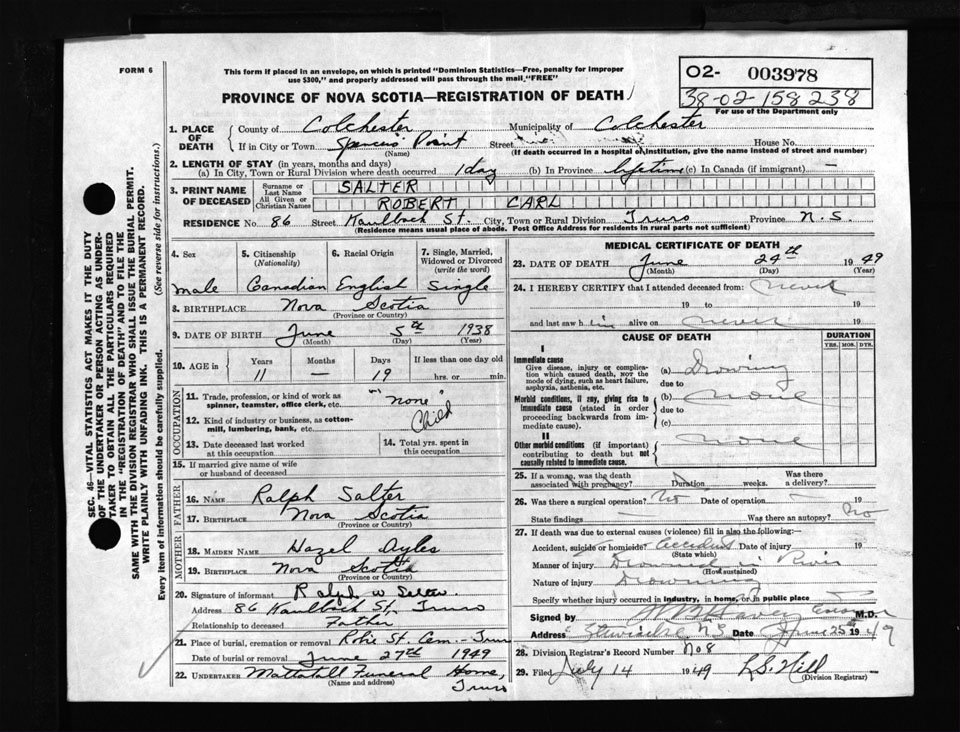 FORM 6
This form if placed in an envelope, on which is printed "Dominion Statistics—Free, penalty for improper
use $300," and properly addressed will pass through the mail "FREE"
O2- 003978
38-02-158238
For use of the Department only
PROVINCE OF NOVA SCOTIA—REGISTRATION OF DEATH
1. PLACE OF DEATH County of Colchester Municipality of Colchester
If in City or Town Spencer's Point Street House No.
(Name) (If death occurred in a hospital or institution, give the name instead of street and number)
2. LENGTH OF STAY (in years, months and days)
(a) In City, Town or Rural Division where death occurred 1 day (b) In Province lifetime (c) In Canada (if immigrant) —
3. PRINT NAME OF DECEASED Surname or Last Name SALTER
All Given or Christian Names ROBERT CARL
RESIDENCE No. 86 Street Haullock St. City, Town or Rural Division Truro Province N.S.
(Residence means usual place of abode. Post Office Address for residents in rural parts not sufficient)
4. Sex 5. Citizenship (Nationality) 6. Racial Origin 7. Single, Married, Widowed or Divorced (write the word)
male Canadian English Single
8. BIRTHPLACE Nova Scotia
(Province or Country)
9. DATE OF BIRTH June 5th 1938
(Month) (Day) (Year)
10. AGE in Years Months Days If less than one day old
11 — 19 hrs. or min.
OCCUPATION
11. Trade, profession, or kind of work as spinner, teamster, office clerk, etc. "none"
12. Kind of industry or business, as cotton-mill, lumbering, bank, etc. Child
13. Date deceased last worked at this occupation
14. Total yrs. spent in this occupation
15. If married give name of wife or husband of deceased
FATHER
16. Name Ralph Salter
17. Birthplace Nova Scotia
(Province or Country)
MOTHER
18. MAIDEN NAME Hazel Ayles
19. BIRTHPLACE Nova Scotia
(Province or Country)
20. Signature of informant Ralph W Salter
Address 86 Haullock St. Truro
Relationship to deceased Father
21. Place of burial, cremation or removal Robie St. Cem. - Truro
Date of burial or removal June 27th 1949
22. UNDERTAKER Mattatall Funeral Home,
Truro
(Name and address)
MEDICAL CERTIFICATE OF DEATH
23. DATE OF DEATH June 24th 1949
(Month) (Day) (Year)
24. I HEREBY CERTIFY that I attended deceased from: never
19 to 19
and last saw him alive on never 19
CAUSE OF DEATH DURATION
YRS. MOS. DYS.
I
Immediate cause
Give disease, injury or complication which caused death, not the mode of dying, such as heart failure, asphyxia, asthenia, etc.
(a) Drowning
due to
Morbid conditions, if any, giving rise to immediate cause (stated in order proceeding backwards from immediate cause).
(b) None
due to
(c)
II
Other morbid conditions (if important) contributing to death but not causally related to immediate cause.
None
25. If a woman, was the death associated with pregnancy? Duration weeks. Was there a delivery?
26. Was there a surgical operation? No Date of operation 19
State findings Was there an autopsy? No
27. If death was due to external causes (violence) fill in also the following:—
Accident, suicide or homicide? Accident Date of injury 19
(State which)
Manner of injury Drowned in River
(How sustained)
Nature of injury Drowning
Specify whether injury occurred in industry, in home, or in public place
Signed by M.D.
Address N.S. Date June 25 1949
28. Division Registrar's Record Number No 8
29. Filed July 14 1949 L.S. Hill
(Division Registrar)
SEC. 46—VITAL STATISTICS ACT MAKES IT THE DUTY
OF THE UNDERTAKER OR PERSON ACTING AS UNDER-
TAKER TO OBTAIN ALL THE PARTICULARS REQUIRED
IN THE "REGISTRATION OF DEATH" AND TO FILE THE
SAME WITH THE DIVISION REGISTRAR WHO SHALL ISSUE THE BURIAL PERMIT.
WRITE PLAINLY WITH UNFADING INK. THIS IS A PERMANENT RECORD.
Every item of information should be carefully supplied. (See reverse side for instructions.)